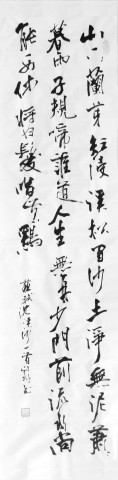 山下蘭芽短浸溪松間沙上淨無泥蕭
暮雨子規啼誰道人生無再少門前流水尚
能西休將白髮唱黃雞
蘇軾浣溪沙